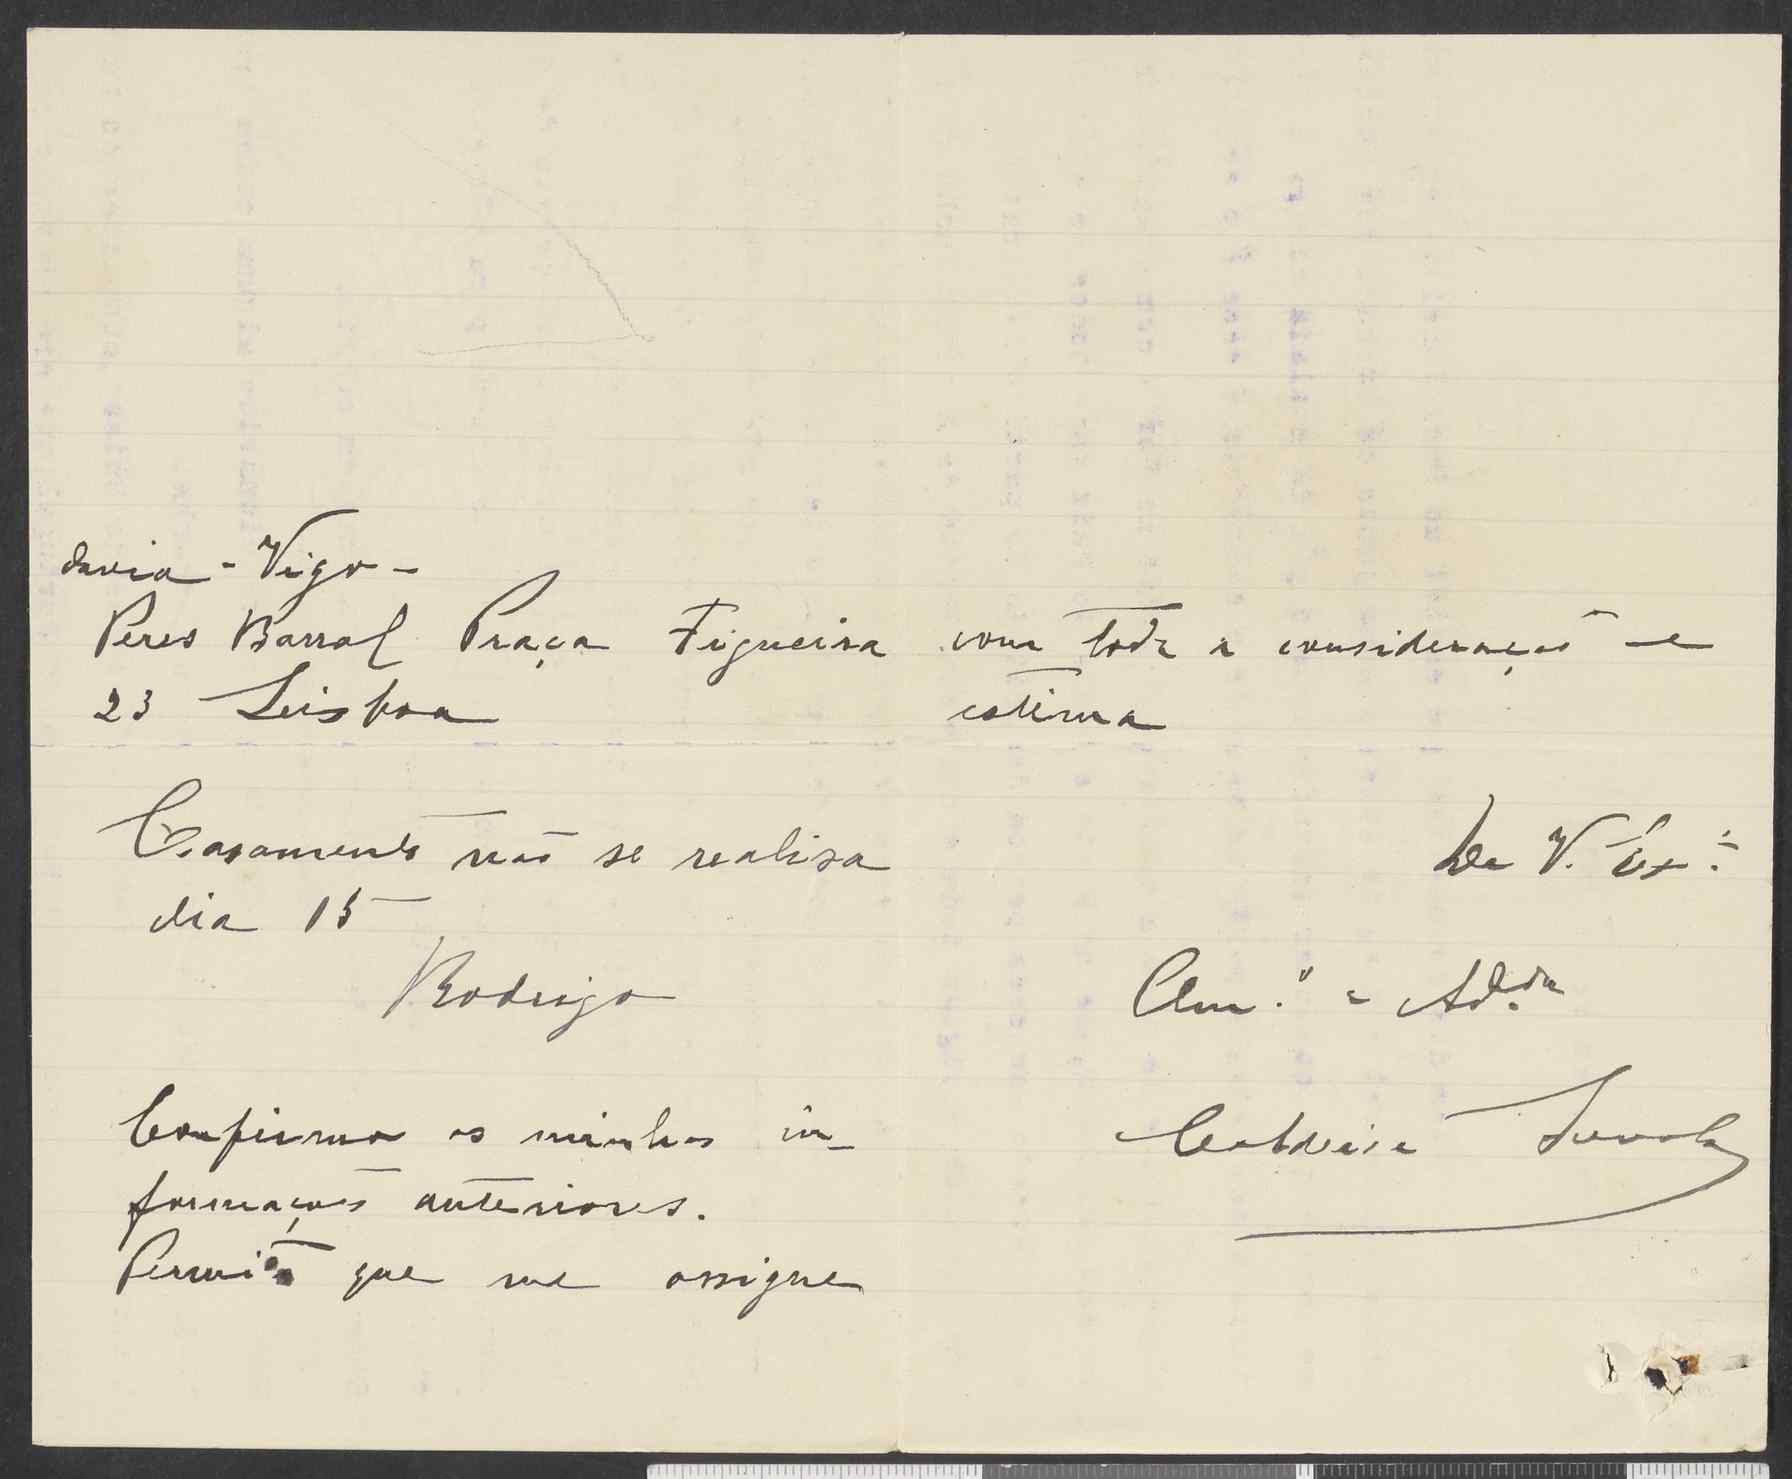 davia - Vigo -
Peres Barral Praça Figueira
23 Leisboa
Casamento não se realisa
dia 15
Rodrigo
Confirmo as minhas in-
formações anteriores.
Permita que me assigne
com toda a consideração e
estima
De V. Ex.ª
Am.º e